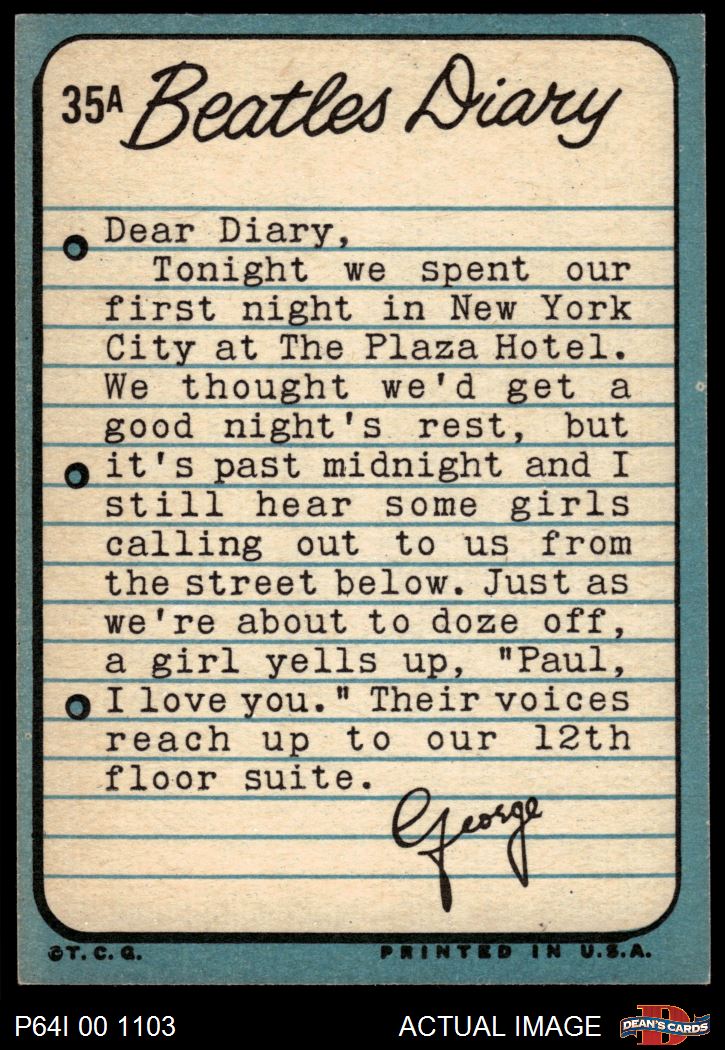 35A Beatles Diary
Dear Diary,
Tonight we spent our
first night in New York
City at The Plaza Hotel.
We thought we'd get a
good night's rest, but
it's past midnight and I
still hear some girls
calling out to us from
the street below. Just as
we're about to doze off,
a girl yells up, "Paul,
I love you." Their voices
reach up to our 12th
floor suite.
George
©T.C.G. PRINTED IN U.S.A.
P64I 00 1103 ACTUAL IMAGE D DEAN'S CARDS